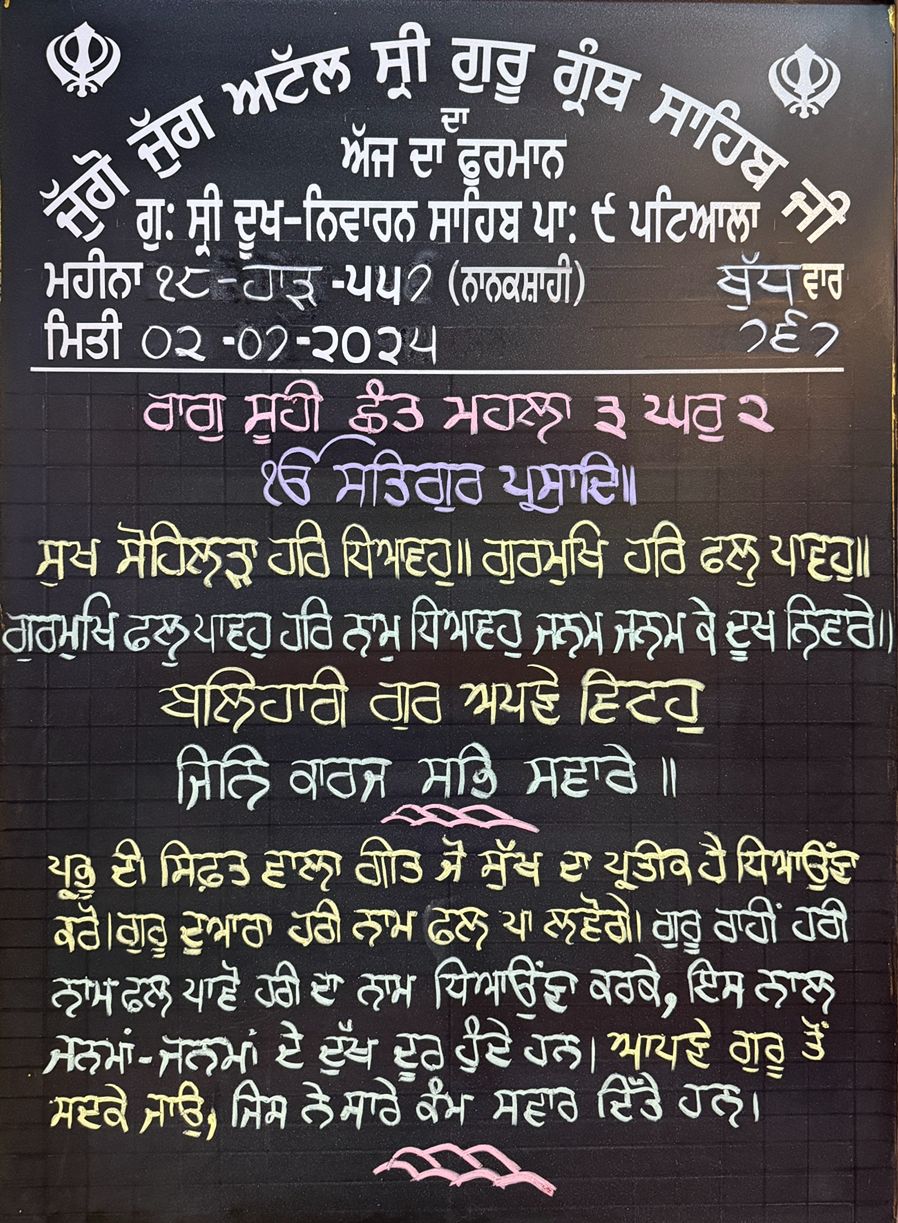 ਜੁੱਗੋ ਜੁੱਗ ਅਟੱਲ ਸ੍ਰੀ ਗੁਰੂ ਗ੍ਰੰਥ ਸਾਹਿਬ ਜੀ
ਦਾ
ਅੱਜ ਦਾ ਫੁਰਮਾਨ
ਗੁ: ਸ੍ਰੀ ਦੂਖ-ਨਿਵਾਰਨ ਸਾਹਿਬ ਪਾ: ੯ ਪਟਿਆਲਾ
ਮਹੀਨਾ ੧੮-ਹਾੜ -੫੫੭ (ਨਾਨਕਸ਼ਾਹੀ) ਬੁੱਧ ਵਾਰ
ਮਿਤੀ ੦੨ -੦੭-੨੦੨੫ ੭੬੭
ਰਾਗੁ ਸੂਹੀ ਛੰਤ ਮਹਲਾ ੩ ਘਰੁ ੨
ੴ ਸਤਿਗੁਰ ਪ੍ਰਸਾਦਿ॥
ਸੁਖ ਸੋਹਿਲੜਾ ਹਰਿ ਧਿਆਵਹੁ॥ ਗੁਰਮੁਖਿ ਹਰਿ ਫਲੁ ਪਾਵਹੁ॥
ਗੁਰਮੁਖਿ ਫਲੁ ਪਾਵਹੁ ਹਰਿ ਨਾਮੁ ਧਿਆਵਹੁ ਜਨਮ ਜਨਮ ਕੇ ਦੂਖ ਨਿਵਾਰੇ॥
ਬਲਿਹਾਰੀ ਗੁਰ ਅਪਣੇ ਵਿਟਹੁ
ਜਿਨਿ ਕਾਰਜ ਸਭਿ ਸਵਾਰੇ ॥
ਪ੍ਰਭੂ ਦੀ ਸਿਫ਼ਤ ਵਾਲਾ ਗੀਤ ਜੋ ਸੁੱਖ ਦਾ ਪ੍ਰਤੀਕ ਹੈ ਧਿਆਉਂਣਾ
ਕਰੋ। ਗੁਰੂ ਦੁਆਰਾ ਹਰੀ ਨਾਮ ਫਲ ਪਾ ਲਵੋਗੇ। ਗੁਰੂ ਰਾਹੀਂ ਹਰੀ
ਨਾਮ ਫਲ ਪਾਵੋ ਹਰੀ ਦਾ ਨਾਮ ਧਿਆਉਂਣਾ ਕਰਕੇ, ਇਸ ਨਾਲ
ਜਨਮਾਂ-ਜਨਮਾਂ ਦੇ ਦੁੱਖ ਦੂਰ ਹੁੰਦੇ ਹਨ। ਆਪਣੇ ਗੁਰੂ ਤੋਂ
ਸਦਕੇ ਜਾਓ, ਜਿਸ ਨੇ ਸਾਰੇ ਕੰਮ ਸਵਾਰ ਦਿੱਤੇ ਹਨ।